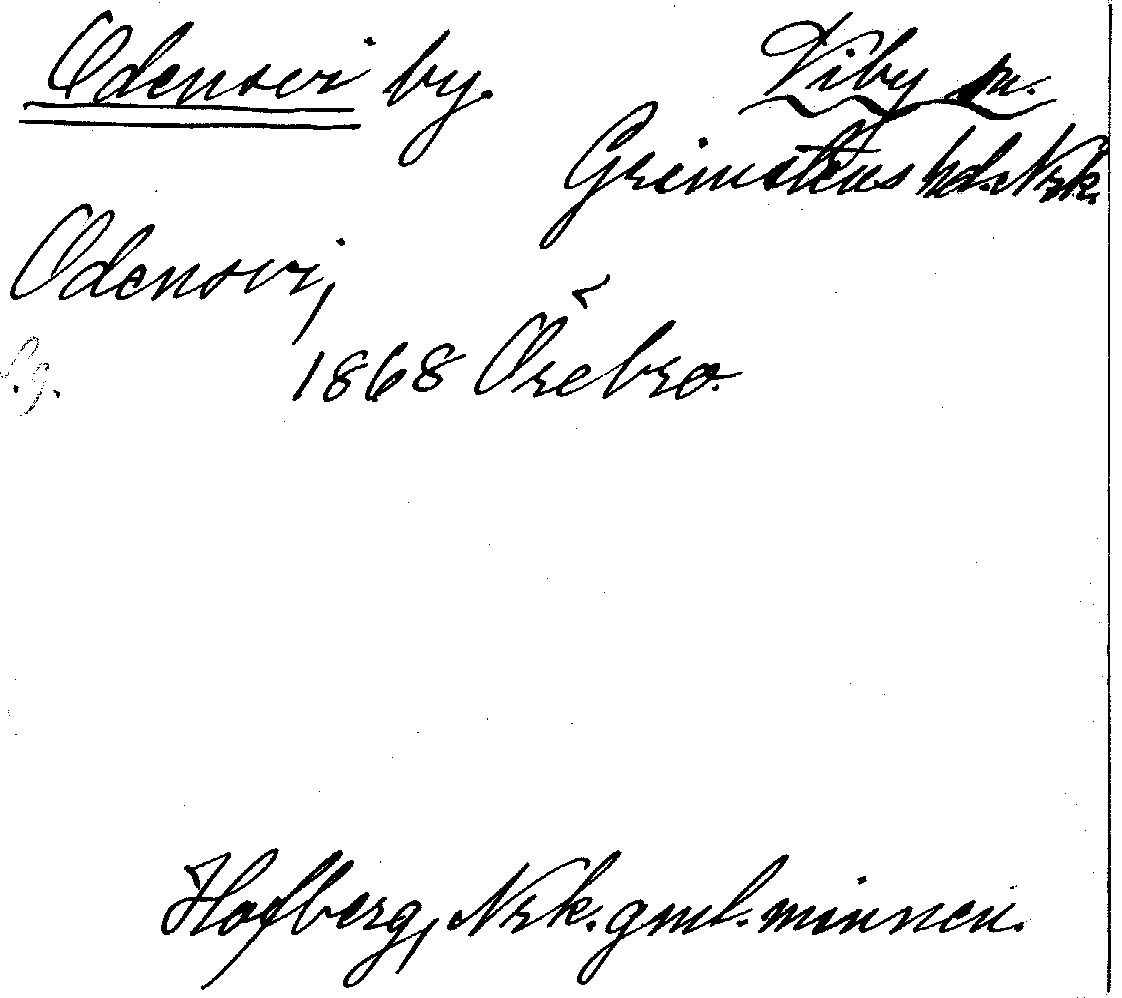 Odensvi by. Viby sn.
Grimstens hd. Nrk.
Odensvi,
1868 Örebro.
Hofberg, Nrk. gml. minnen.